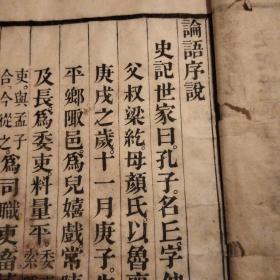 論語序說
史記世家曰孔子名丘字
父叔梁紇母顏氏以魯
庚戌之歲十一月庚子
平鄉陬邑爲兒嬉戲常
及長爲委吏料量平委
吏與孟子
合今從之爲司職吏畜